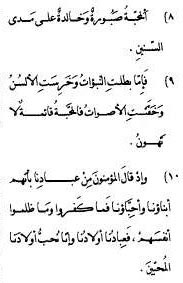 ٨) ٱلْمَحَبَّةُ صَبُورَةٌ وَخَالِدَةٌ عَلَى مَدَى
السِّنِينِ .
٩) فَإِمَّا بَطَلَتِ النُّبُوَّاتُ وَخَرِسَتِ الأَلْسُنُ
وَخَفَتَتِ الأَصْوَاتُ فَالمَحَبَّةُ قَائِمَةٌ لاَ
تَهُونُ .
١٠) وَإِذْ قَالَ المُؤْمِنُونَ مِنْ عِبَادِنَا بِأَنَّهُمْ
أَبْنَاؤُنَا وَأَحِبَّاؤُنَا فَمَا كَفَرُوا وَمَا ظَلَمُوا
أَنْفُسَهُمْ ، فَعِبَادُنَا أَوْلاَدُنَا وَإِنَّا نُحِبُّ أَوْلاَدَنَا
المُحِبِّينَ .